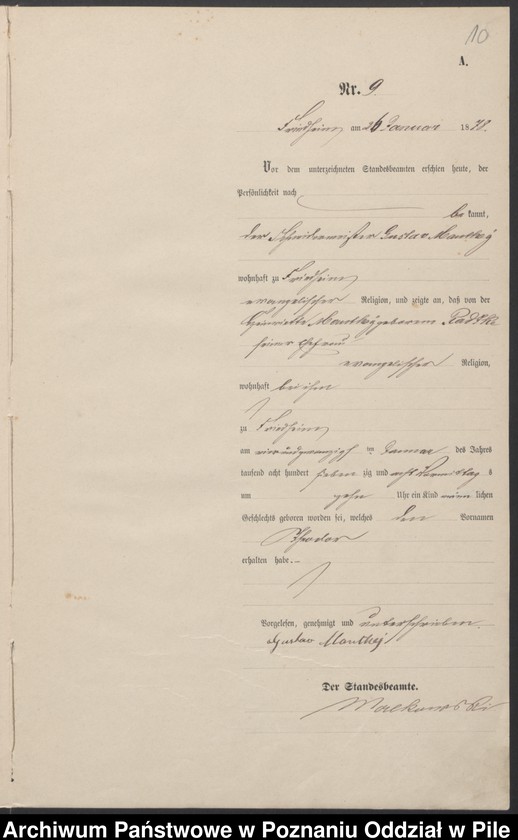 10
A.
Nr. 9.
Friedheim am 26 Januar 1878.
Vor dem unterzeichneten Standesbeamten erschien heute, der
Persönlichkeit nach
be kannt,
der Schneidermeister Gustav Manthey
wohnhaft zu Friedheim
evangelischer Religion, und zeigte an, daß von der
Henriette Manthey geborenen Radtke
seiner Ehefrau
evangelischer Religion,
wohnhaft bei ihm
zu Friedheim
am vierundzwanzigsten Januar des Jahres
tausend acht hundert sieben zig und acht Vormittag s
um zehn Uhr ein Kind männ lichen
Geschlechts geboren worden sei, welches den Vornamen
Theodor
erhalten habe.
Vorgelesen, genehmigt und unterschrieben.
Gustav Manthey
Der Standesbeamte.
Malkowski
Archiwum Państwowe w Poznaniu Oddział w Pile